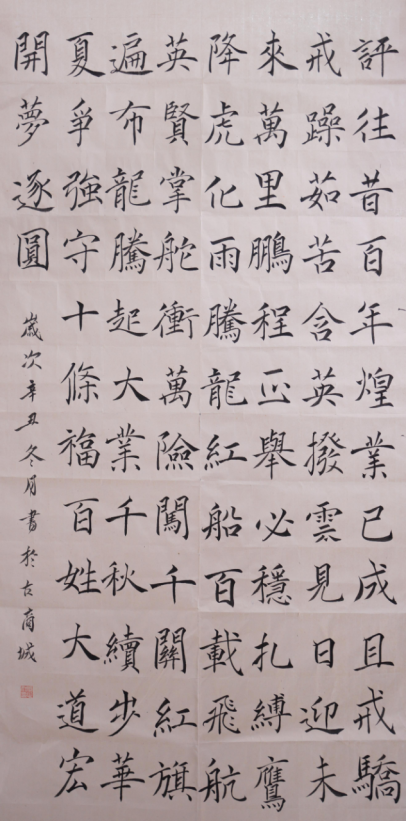 評往昔百年煌業已成且戒驕
戒躁茹苦含英撥雲見日迎未
來萬里鵬程正舉必穩扎縛鷹
降虎化雨騰龍紅船百載飛航
英賢掌舵衝萬險闖千關紅旗
遍布龍騰起大業千秋續步華
夏爭強守十條福百姓大道宏
開夢逐圓
歲次辛丑冬月書於古商城